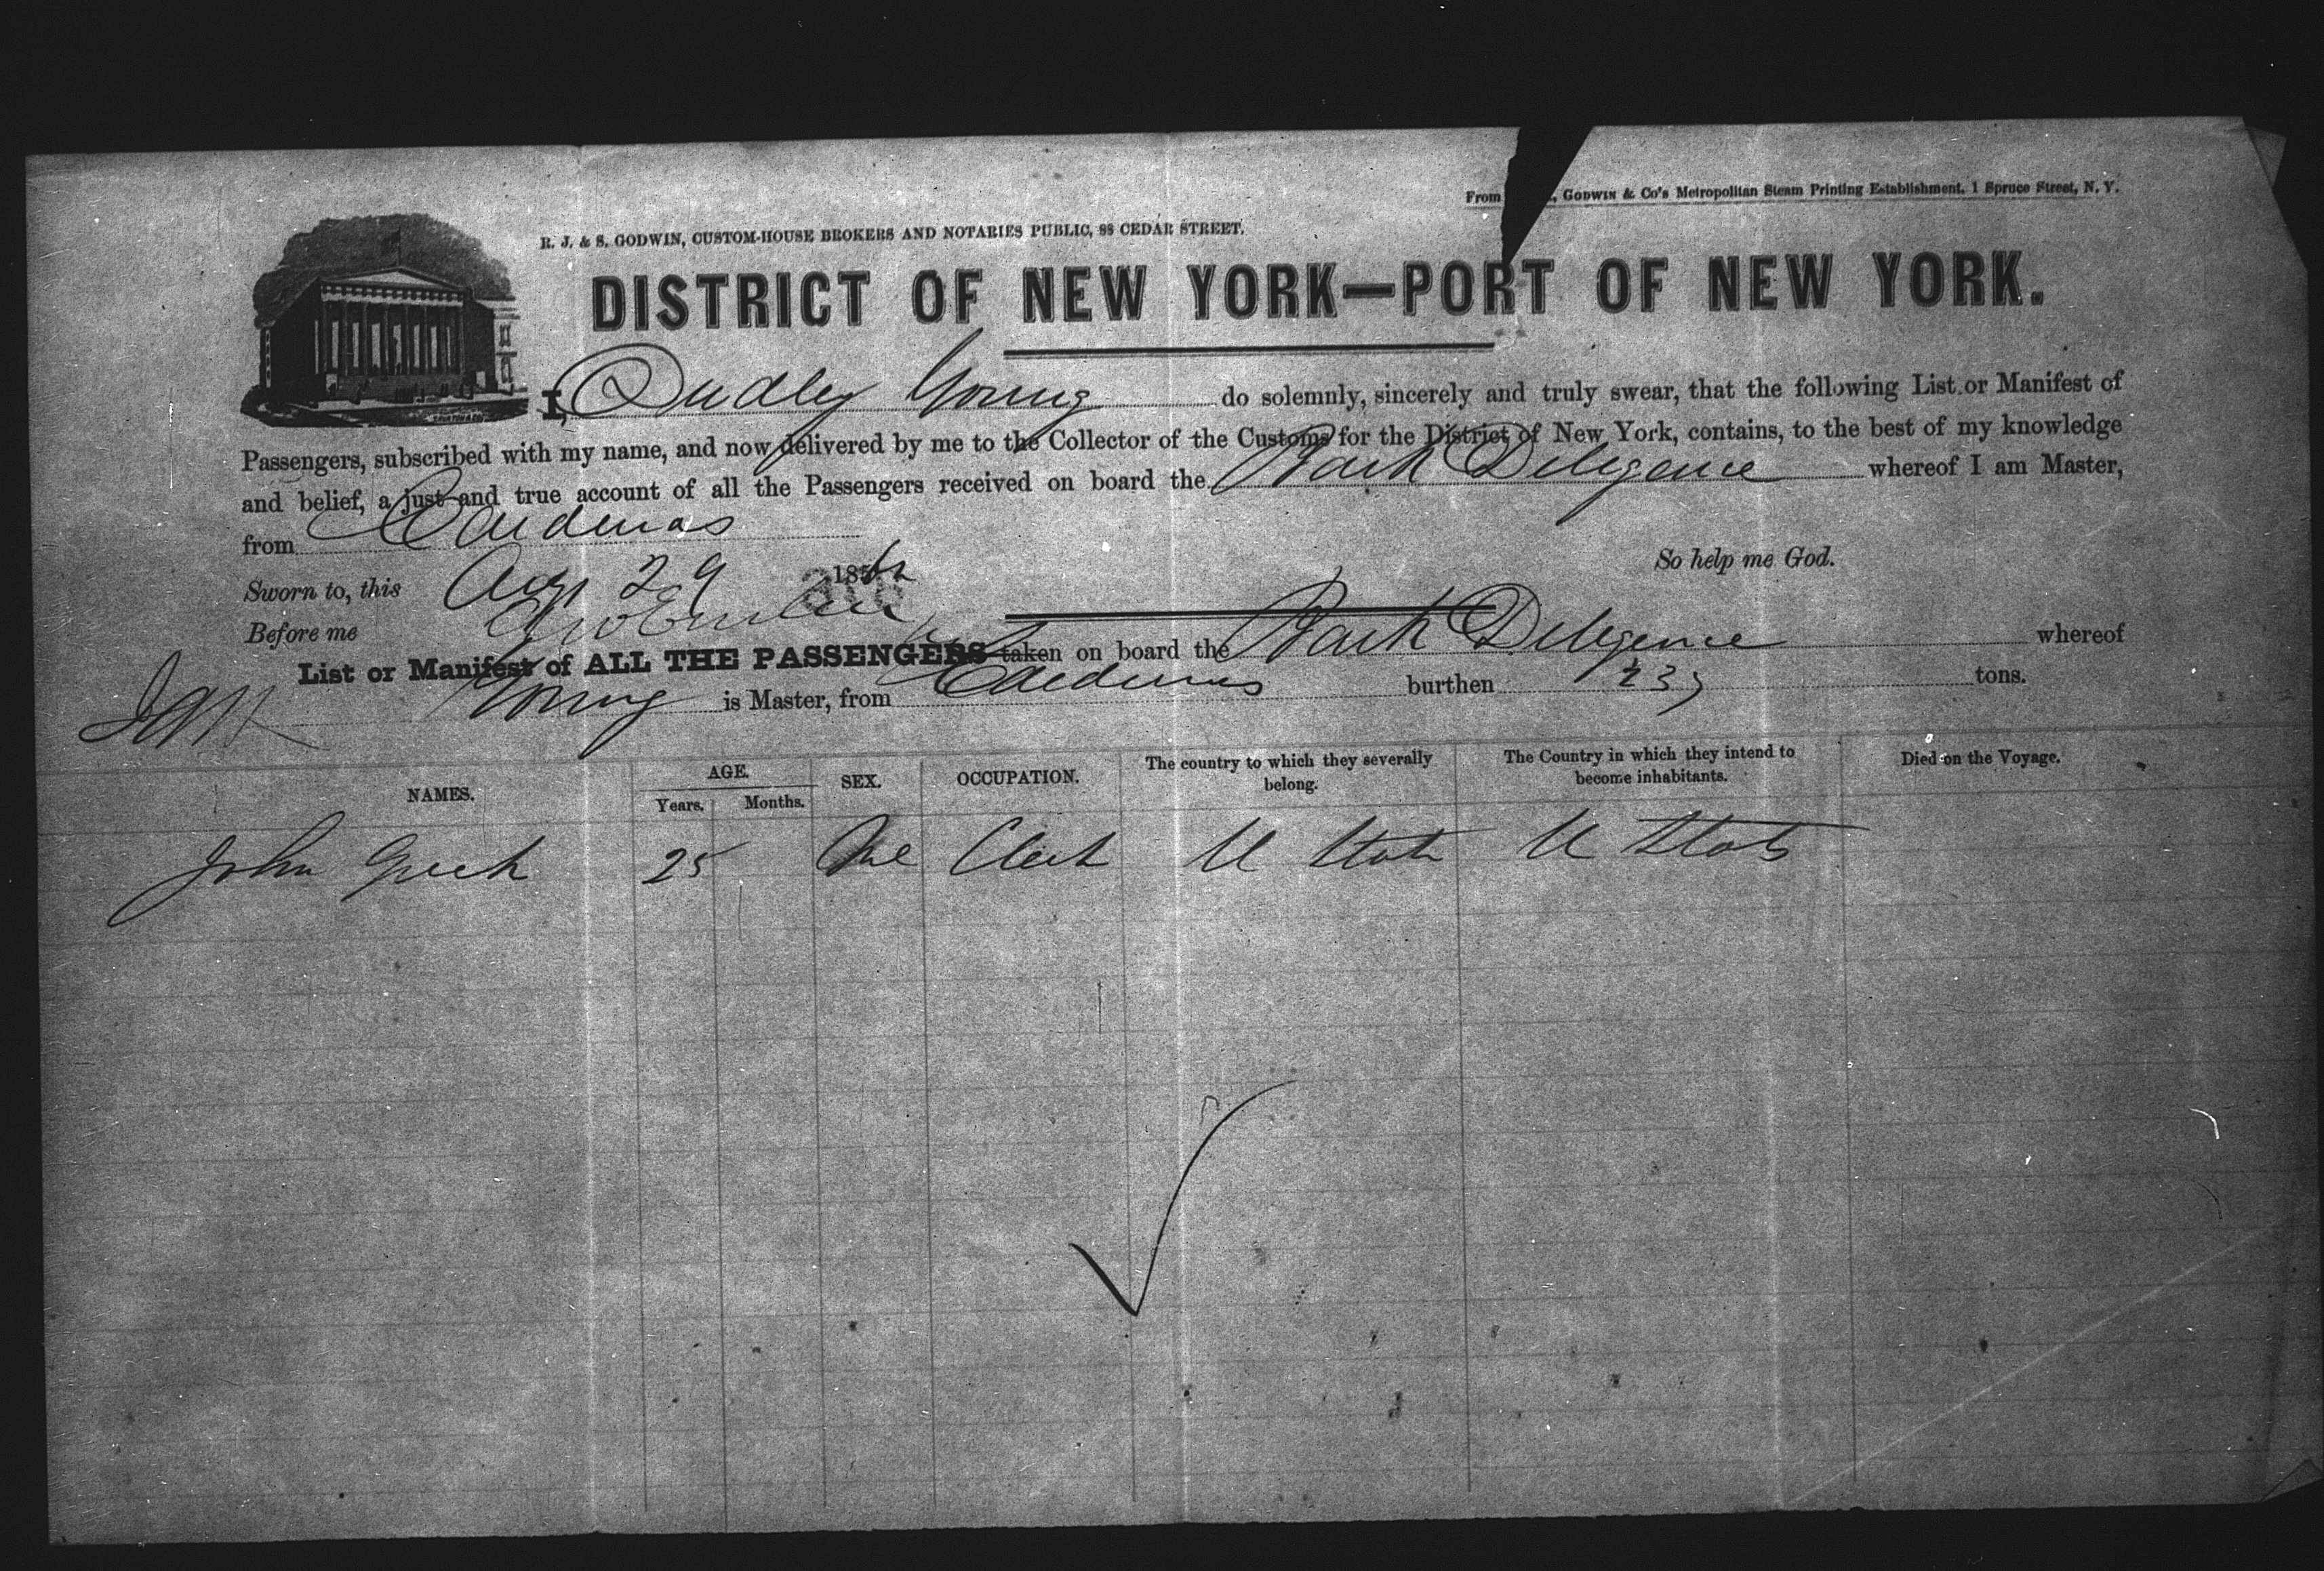 From , GODWIN & Co's Metropolitan Steam Printing Establishment, 1 Spruce Street, N. Y.
R. J. & S. GODWIN, CUSTOM-HOUSE BROKERS AND NOTARIES PUBLIC, 88 CEDAR STREET.
DISTRICT OF NEW YORK—PORT OF NEW YORK.
I, Dudley Young do solemnly, sincerely and truly swear, that the following List or Manifest of
Passengers, subscribed with my name, and now delivered by me to the Collector of the Customs for the District of New York, contains, to the best of my knowledge
and belief, a just and true account of all the Passengers received on board the Bark Deligence whereof I am Master,
from Cardenas
So help me God.
Sworn to, this Aug 29 185
Before me
List or Manifest of ALL THE PASSENGERS taken on board the Bark Deligence whereof
Young is Master, from Cardenas burthen tons.
NAMES. AGE. Years. Months. SEX. OCCUPATION. The country to which they severally belong. The Country in which they intend to become inhabitants. Died on the Voyage.
John 25 Clerk U States U States